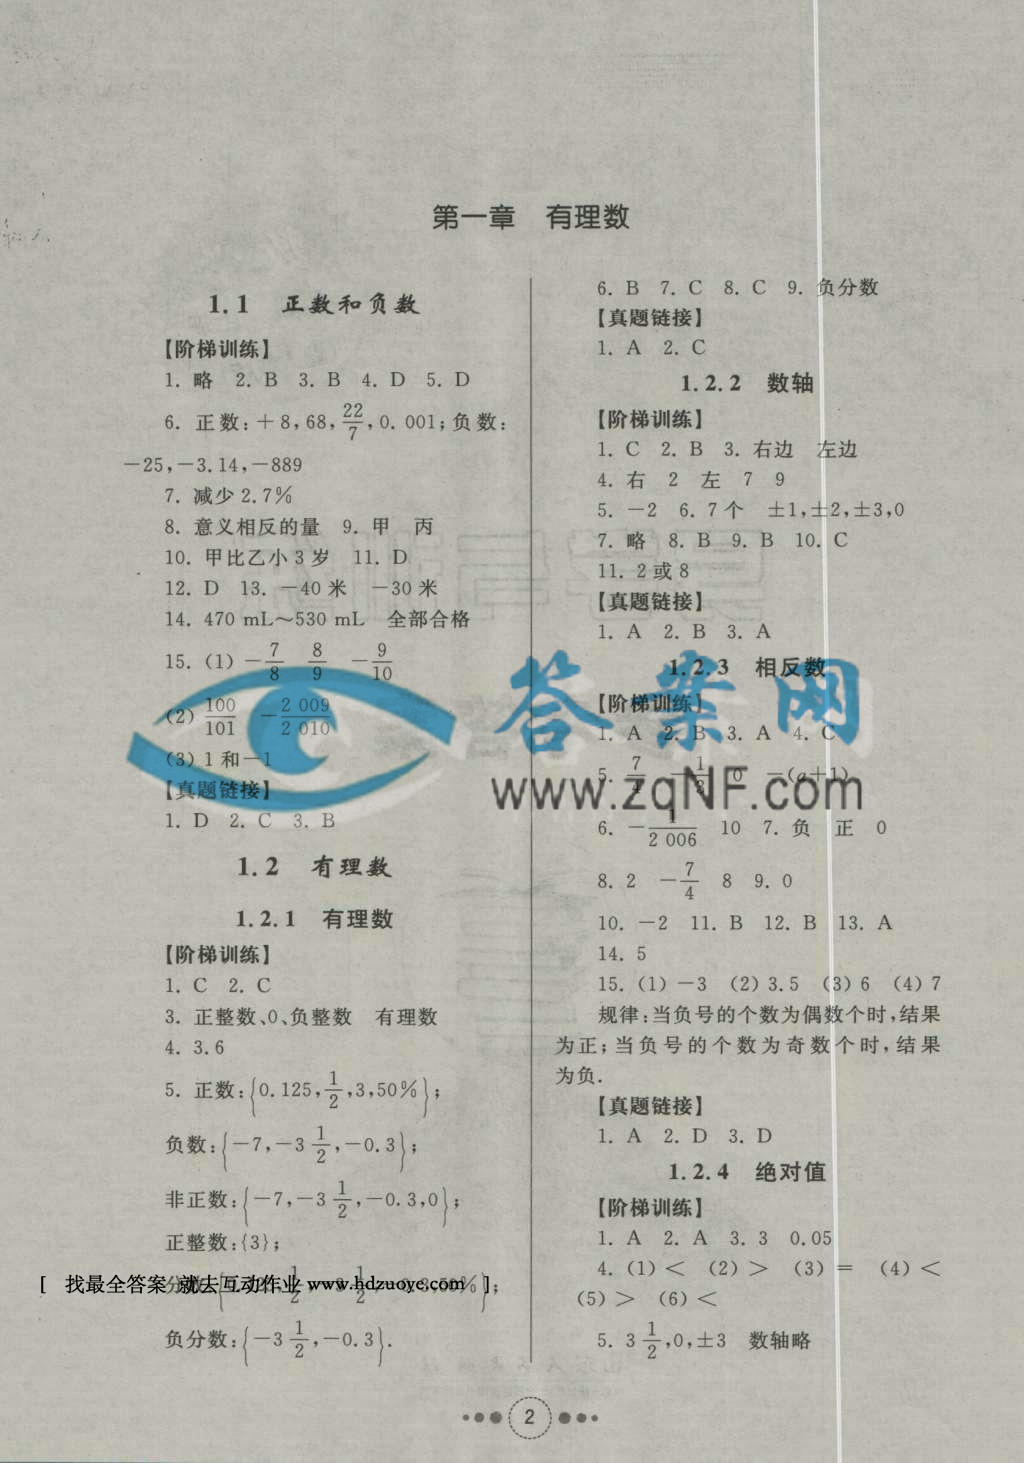 第一章 有理数
1.1 正数和负数
【阶梯训练】
1. 略 2. B 3. B 4. D 5. D
6. 正数:+8,68,22/7,0.001;负数:
-25,-3.14,-889
7. 减少2.7%
8. 意义相反的量 9. 甲 丙
10. 甲比乙小3岁 11. D
12. D 13. -40米 -30米
14. 470 mL~530 mL 全部合格
15. (1) -7/8 8/9 -9/10
(2) 100/101 -2 009/2 010
(3) 1和-1
【真题链接】
1. D 2. C 3. B
1.2 有理数
1.2.1 有理数
【阶梯训练】
1. C 2. C
3. 正整数、0、负整数 有理数
4. 3.6
5. 正数:{0.125,1/2,3,50%};
负数:{-7,-3 1/2,-0.3};
非正数:{-7,-3 1/2,-0.3,0};
正整数:{3};
[ 找最全答案 就去互动作业 www.hdzuoye.com ]
负分数:{-3 1/2,-0.3}.
6. B 7. C 8. C 9. 负分数
【真题链接】
1. A 2. C
1.2.2 数轴
【阶梯训练】
1. C 2. B 3. 右边 左边
4. 右 2 左 7 9
5. -2 6. 7个 ±1,±2,±3,0
7. 略 8. B 9. B 10. C
11. 2或8
【真题链接】
1. A 2. B 3. A
1.2.3 相反数
【阶梯训练】
1. A 2. B 3. A 4. C
5. 7/4 0 -(a+1)
答案网
www.zqNF.com
6. -1/2 006 10 7. 负 正 0
8. 2 -7/4 8 9. 0
10. -2 11. B 12. B 13. A
14. 5
15. (1) -3 (2) 3.5 (3) 6 (4) 7
规律:当负号的个数为偶数个时,结果
为正;当负号的个数为奇数个时,结果
为负.
【真题链接】
1. A 2. D 3. D
1.2.4 绝对值
【阶梯训练】
1. A 2. A 3. 3 0.05
4. (1)< (2)> (3)= (4)<
(5)> (6)<
5. 3 1/2,0,±3 数轴略
2